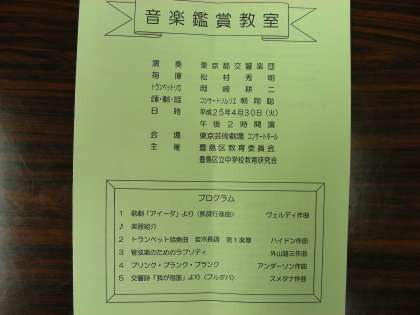 音楽鑑賞教室
演奏 東京都交響楽団
指揮 松村秀明
トランペットソロ 岡崎耕二
企画・構成・解説 コンサートソムリエ 朝岡聡
日時 平成25年4月30日(火)
午後2時開演
会場 東京芸術劇場 コンサートホール
主催 豊島区教育委員会
豊島区立中学校教育研究会
プログラム
1 歌劇「アイーダ」より(凱旋行進曲) ヴェルディ作曲
♪ 楽器紹介
2 トランペット協奏曲 変ホ長調 第1楽章 ハイドン作曲
3 管弦楽のためのラプソディ 外山雄三作曲
4 プリンク・プランク・プランク アンダーソン作曲
5 交響詩「我が祖国」より(ブルタバ) スメタナ作曲